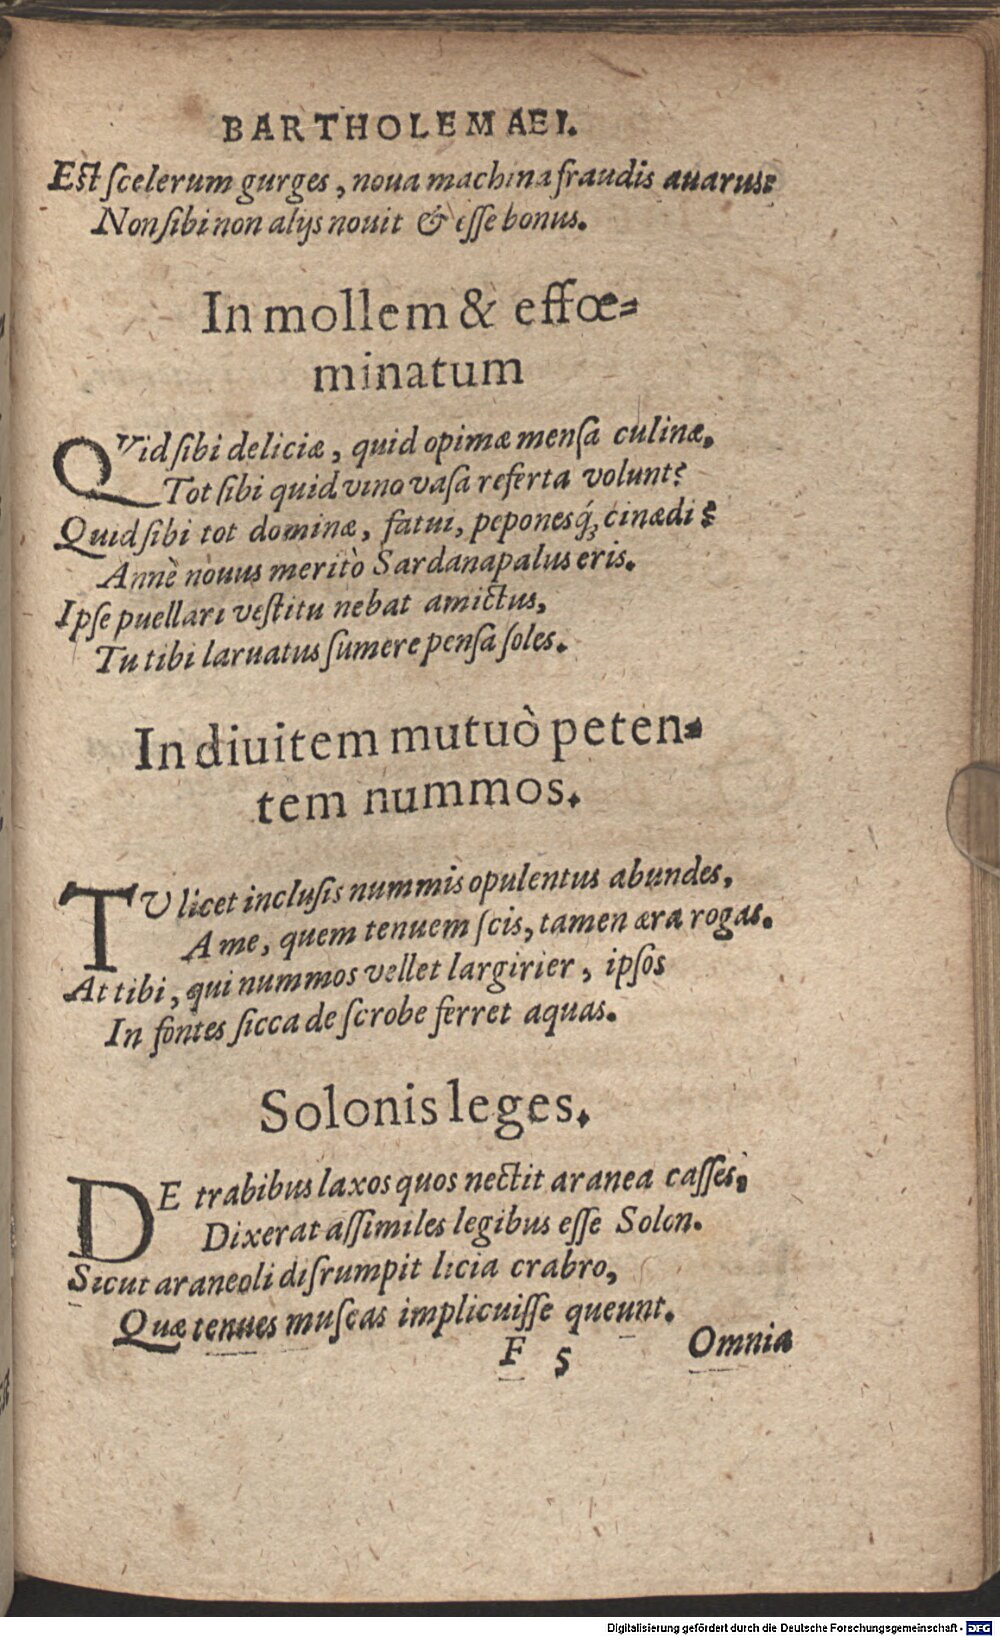 BARTHOLEMAEI.
Est scelerum gurges, noua machina fraudis auarus:
Non sibi non alijs nouit & esse bonus.
In mollem & effœ=
minatum
QVid sibi deliciæ, quid opimæ mensa culinæ,
Tot sibi quid vino vasa referta volunt?
Quid sibi tot dominæ, fatui, peponesq́; cinædi?
Annè nouus meritò Sardanapalus eris.
Ipse puellari vestitu nebat amictus,
Tu tibi laruatus sumere pensa soles.
In diuitem mutuò peten=
tem nummos.
TV licet inclusis nummis opulentus abundes,
A me, quem tenuem scis, tamen æra rogas.
At tibi, qui nummos vellet largirier, ipsos
In fontes sicca de scrobe ferret aquas.
Solonis leges.
DE trabibus laxos quos nectit aranea casses,
Dixerat assimiles legibus esse Solon.
Sicut araneoli disrumpit licia crabro,
Quæ tenues muscas implicuisse queunt.
F 5 Omnia
Digitalisierung gefördert durch die Deutsche Forschungsgemeinschaft - DFG